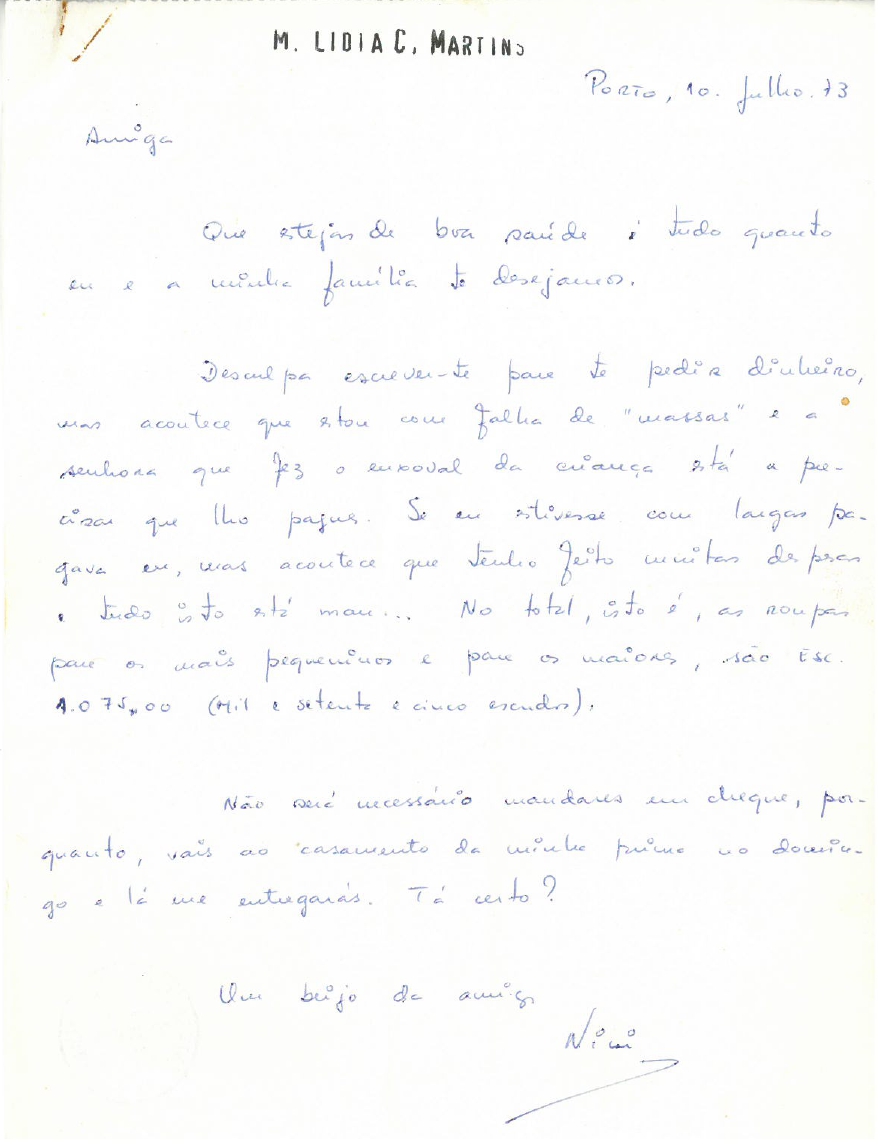 M. LIDIA C. MARTINS
Porto, 10. Julho. 73
Amiga
Que estejas de boa saúde é tudo quanto
eu e a minha família te desejamos.
Desculpa escrever-te para te pedir dinheiro,
mas acontece que estou com falha de "massas" e a
senhora que fez o enxoval da criança está a pre-
cisar que lho pague. Se eu estivesse com largas pa-
gava eu, mas acontece que tenho feito muitas despesas
e tudo isto está mau... No total, isto é, as roupas
para os mais pequeninos e para os maiores, são Esc.
1.075,00 (Mil e setenta e cinco escudos).
Não será necessário mandares em cheque, por-
quanto, vais ao casamento da minha prima no domin-
go e lá me entregarás. Tá certo?
Um beijo da amiga
Nini